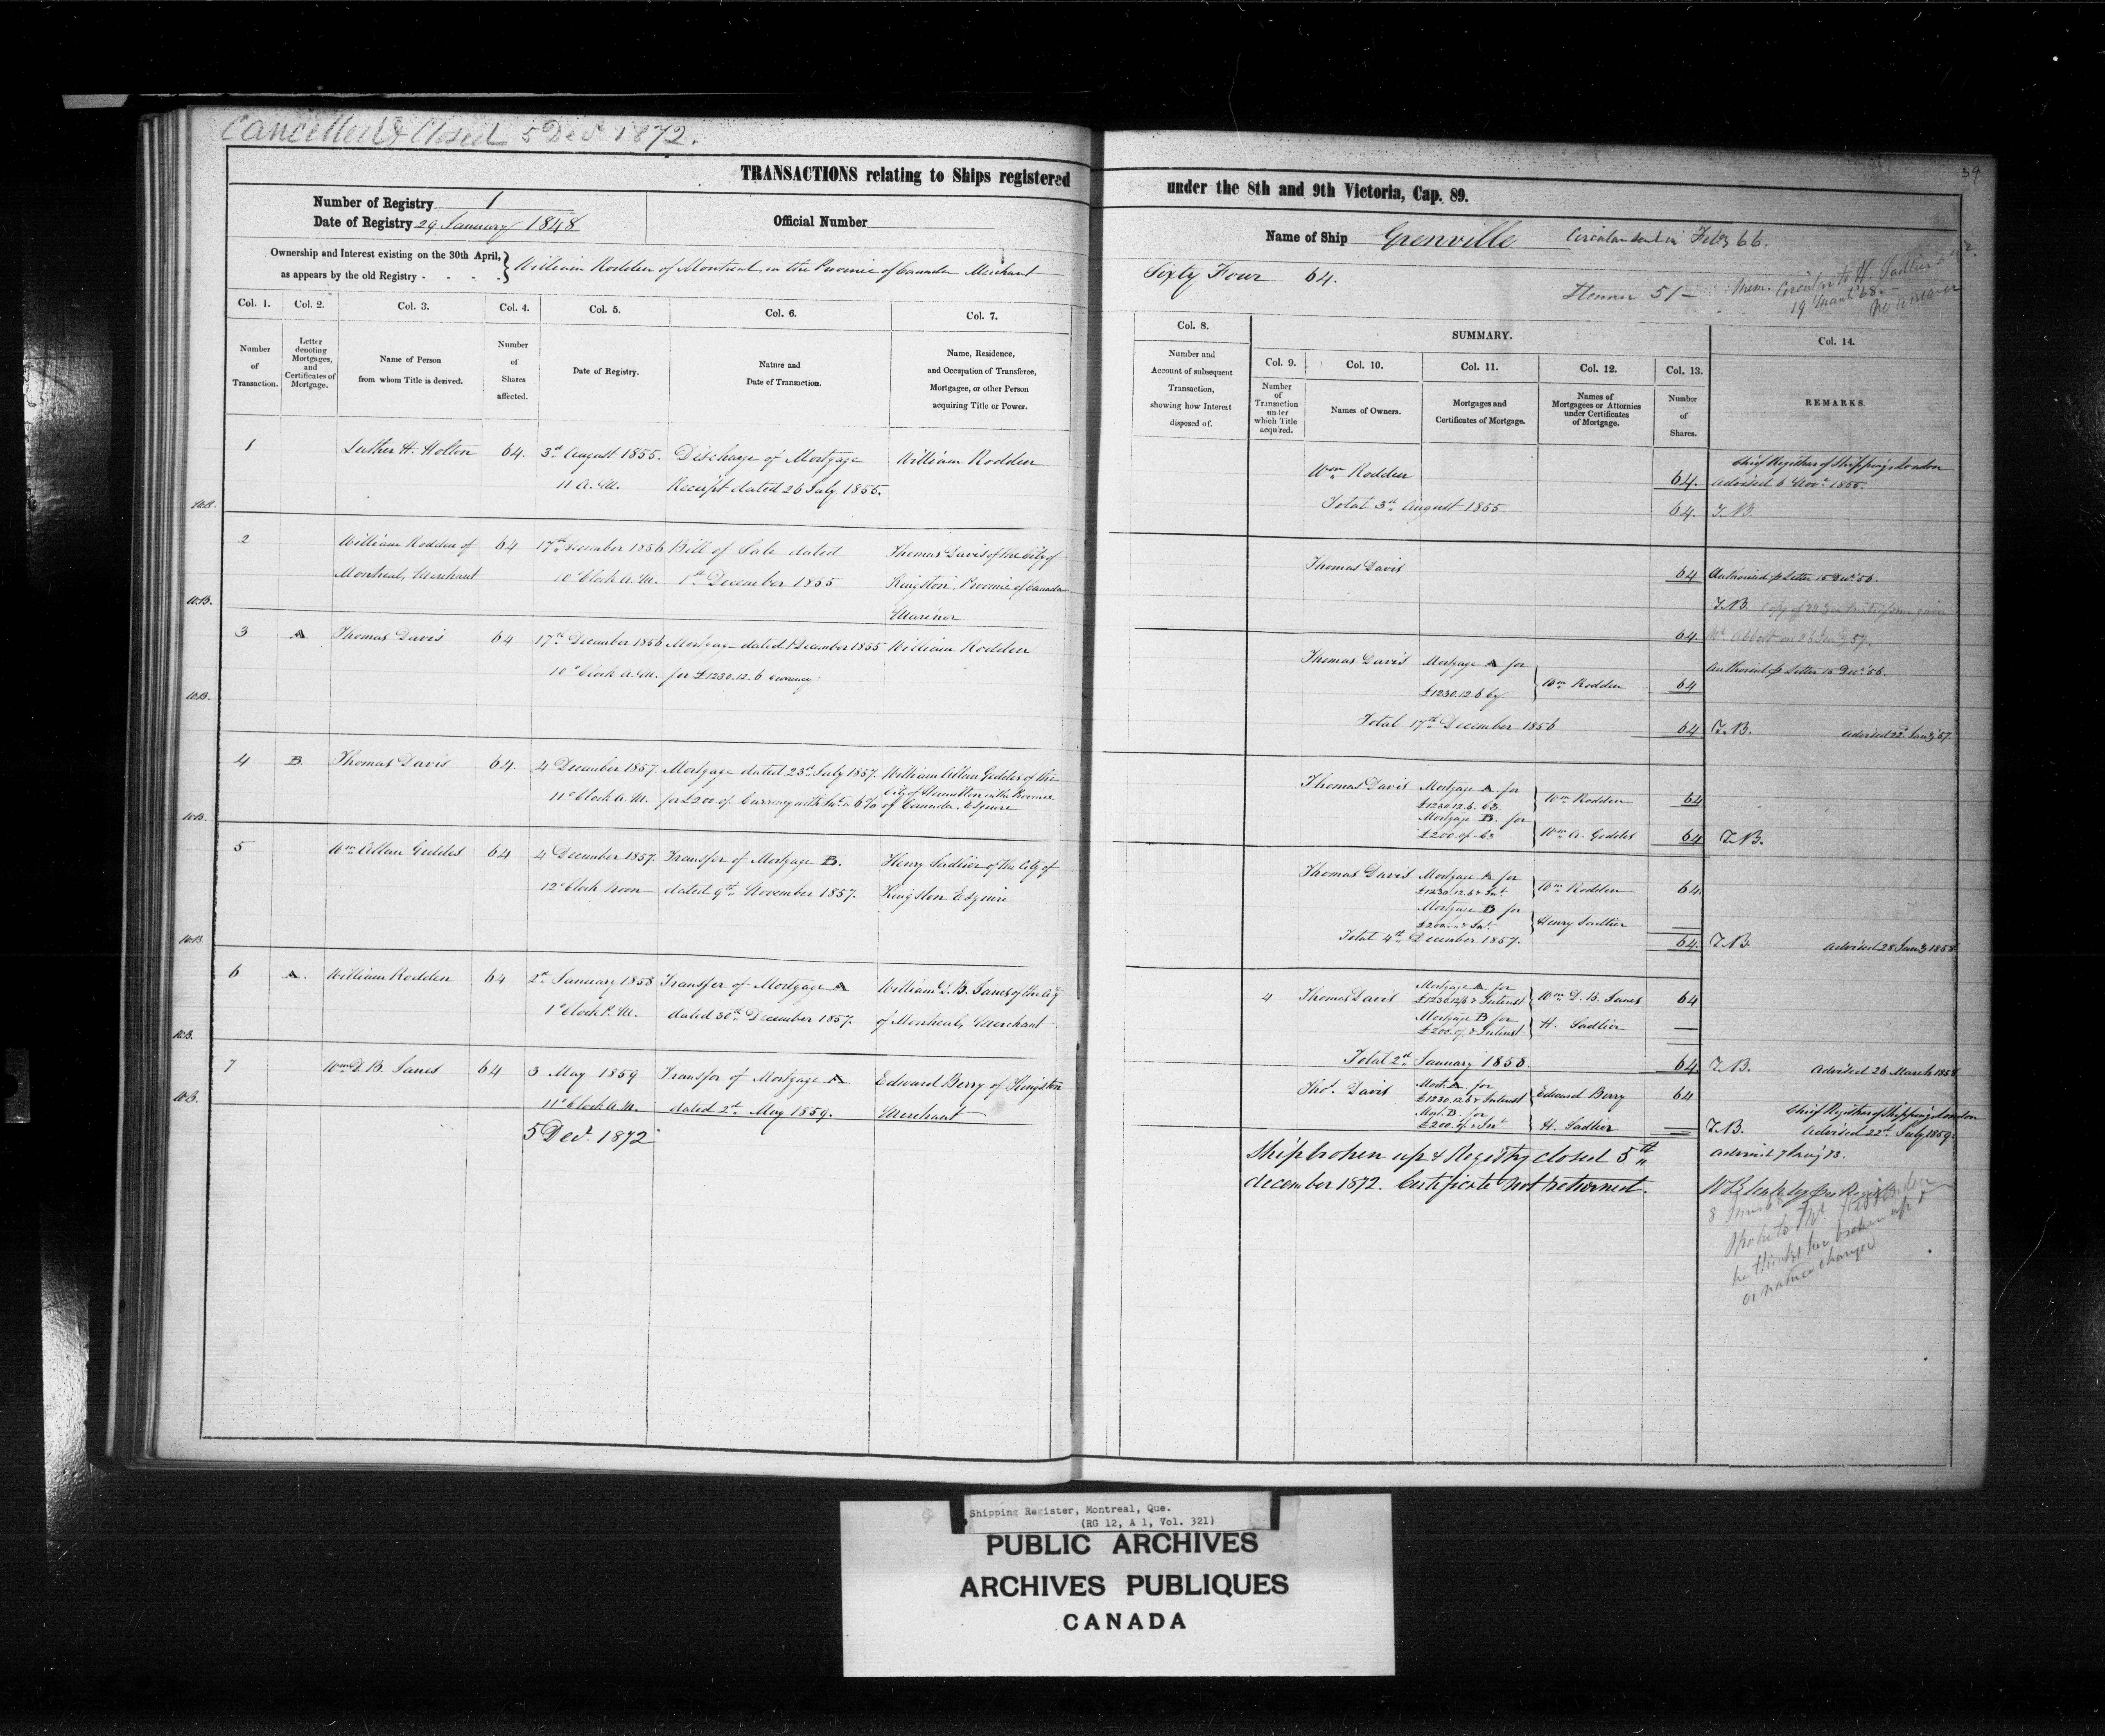 Cancelled & Closed 5 Decr 1872.
39
TRANSACTIONS relating to Ships registered under the 8th and 9th Victoria, Cap. 89.
Number of Registry 1
Date of Registry 29 January 1848
Official Number
Name of Ship Grenville Circular sent in Feby 66.
Ownership and Interest existing on the 30th April,
as appears by the old Registry - - - -
William Rodden of Montreal, in the Province of Canada Merchant
Sixty Four 64.
51
Mem. Circular to H. Sadlier
19 March '68.
No answer
Col. 1.
Col. 2.
Col. 3.
Col. 4.
Col. 5.
Col. 6.
Col. 7.
Col. 8.
SUMMARY.
Col. 9.
Col. 10.
Col. 11.
Col. 12.
Col. 13.
Col. 14.
Number
of
Transaction.
Letter
denoting
Mortgages,
and
Certificates of
Mortgage.
Name of Person
from whom Title is derived.
Number
of
Shares
affected.
Date of Registry.
Nature and
Date of Transaction.
Name, Residence,
and Occupation of Transferee,
Mortgagee, or other Person
acquiring Title or Power.
Number and
Account of subsequent
Transaction,
showing how Interest
disposed of.
Number
of
Transaction
under
which Title
acquired.
Names of Owners.
Mortgages and
Certificates of Mortgage.
Names of
Mortgagees or Attornies
under Certificates
of Mortgage.
Number
of
Shares.
REMARKS.
1 Luther H. Holton 64. 3rd August 1855. Discharge of Mortgage William Rodden
11 A.M. Receipt dated 26 July, 1855.
Wm Rodden 64. Chief Registrar of Shipping London
advised 6 Novr 1855.
Total 3rd August 1855. 64. T.B.
W.B.
2 William Rodden of 64 17th December 1856 Bill of Sale dated Thomas Davis of the City of
Montreal, Merchant 10 o'Clock A.M. 1st December 1855 Kingston, Province of Canada
Marinor
Thomas Davis 64 Authorised p Letter 15 Decr '56.
T.B.
64. Mr Abbott on 26 Jany 57.
W.B.
3 A Thomas Davis 64 17th December 1856 Mortgage dated 1 December 1855 William Rodden
10 o'Clock A.M. for £1230.12.6 Currency
Thomas Davis Mortgage A for
£1230.12.6 Cy. Wm Rodden 64
Authorised p Letter 15 Decr '56.
Total 17th December 1856 64 T.B. advised 22d Jany 57.
W.B.
4 B. Thomas Davis 64. 4 December 1857. Mortgage dated 23rd July 1857. William Allan Geddes of the
City of Hamilton in the Province
11 o'Clock A.M. for £200.. Currency with Int. @ 6% of Canada, Esquire
Thomas Davis Mortgage A for
£1230.12.6. Wm Rodden 64
Mortgage B. for
£200 Wm A. Geddes 64 T.B.
W.B.
5 Wm Allan Geddes 64 4 December 1857. Transfer of Mortgage B. Henry Sadlier of the City of
12 o'Clock Noon dated 9th November 1857. Kingston Esquire
Thomas Davis Mortgage A for
£1230.12.6 & Int. Wm Rodden 64
Mortgage B for
£200 & Int. Henry Sadlier
Total 4th December 1857. 64. T.B. advised 28 Jany 1858
W.B.
6 A. William Rodden 64 2nd January 1858 Transfer of Mortgage A William D.B. Janes of the City
1 o'Clock P.M. dated 30th December 1857. of Montreal, Merchant
4 Thomas Davis Mortgage A for
£1230.12/6 & Interest Wm D.B. Janes 64
Mortgage B for
£200. & Interest H. Sadlier
Total 2nd January 1858. 64. T.B. advised 26 March 1858
W.B.
7 Wm D.B. Janes 64 3 May 1859 Transfer of Mortgage A Edward Berry of Kingston
11 o'Clock A.M. dated 2nd May 1859. Merchant
Thos Davis Mort. A for
£1230.12.6 & Interest Edward Berry 64
Mort. B. for
£200. & Int H. Sadlier
Chief Registrar of Shipping London
T.B. advised 22nd July 1859.
W.B.
5 Decr 1872
Ship broken up & Registry closed 5th
december 1872. Certificate not returned.
Spoke to Mr.
he thinks her broken up &
or name changed
Shipping Register, Montreal, Que.
(RG 12, A 1, Vol. 321)
PUBLIC ARCHIVES
ARCHIVES PUBLIQUES
CANADA